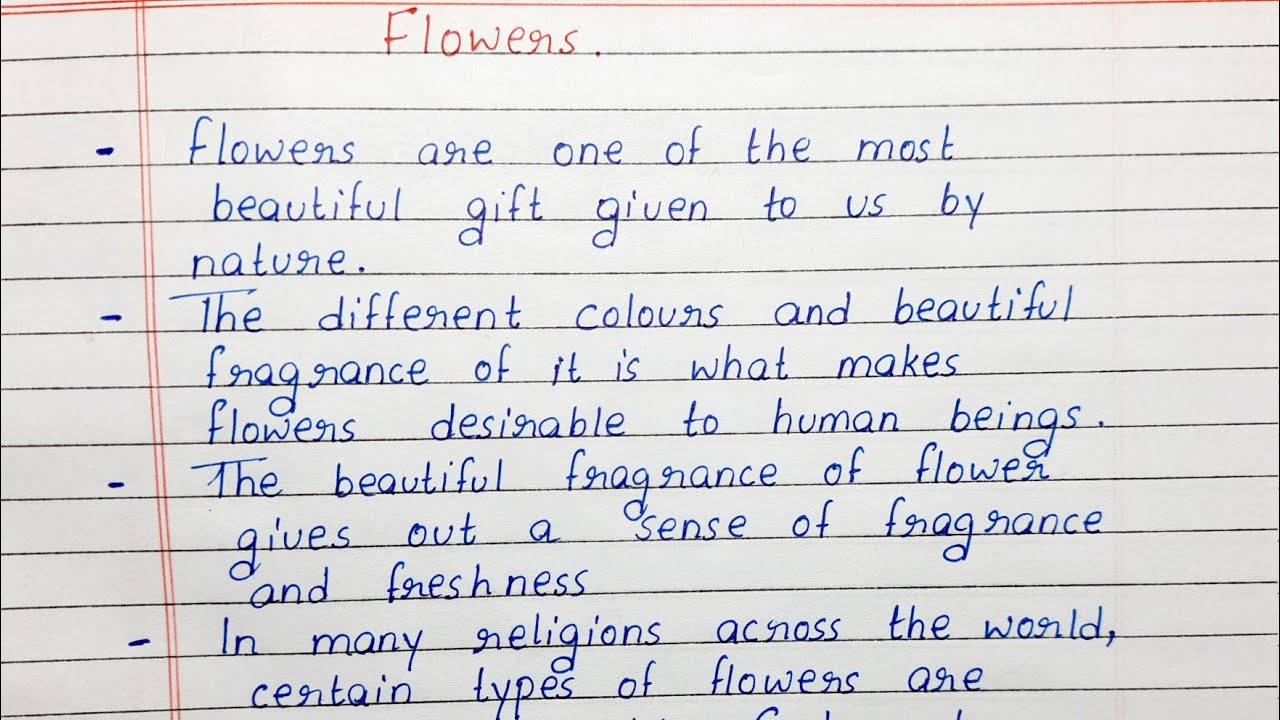 Flowers.
- flowers are one of the most
beautiful gift given to us by
nature.
- The different colours and beautiful
fragrance of it is what makes
flowers desirable to human beings.
- The beautiful fragrance of flower
gives out a sense of fragrance
and freshness
- In many religions across the world,
certain types of flowers are